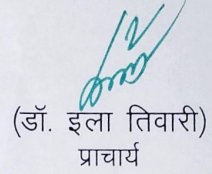 (डॉ. इला तिवारी)
प्राचार्य